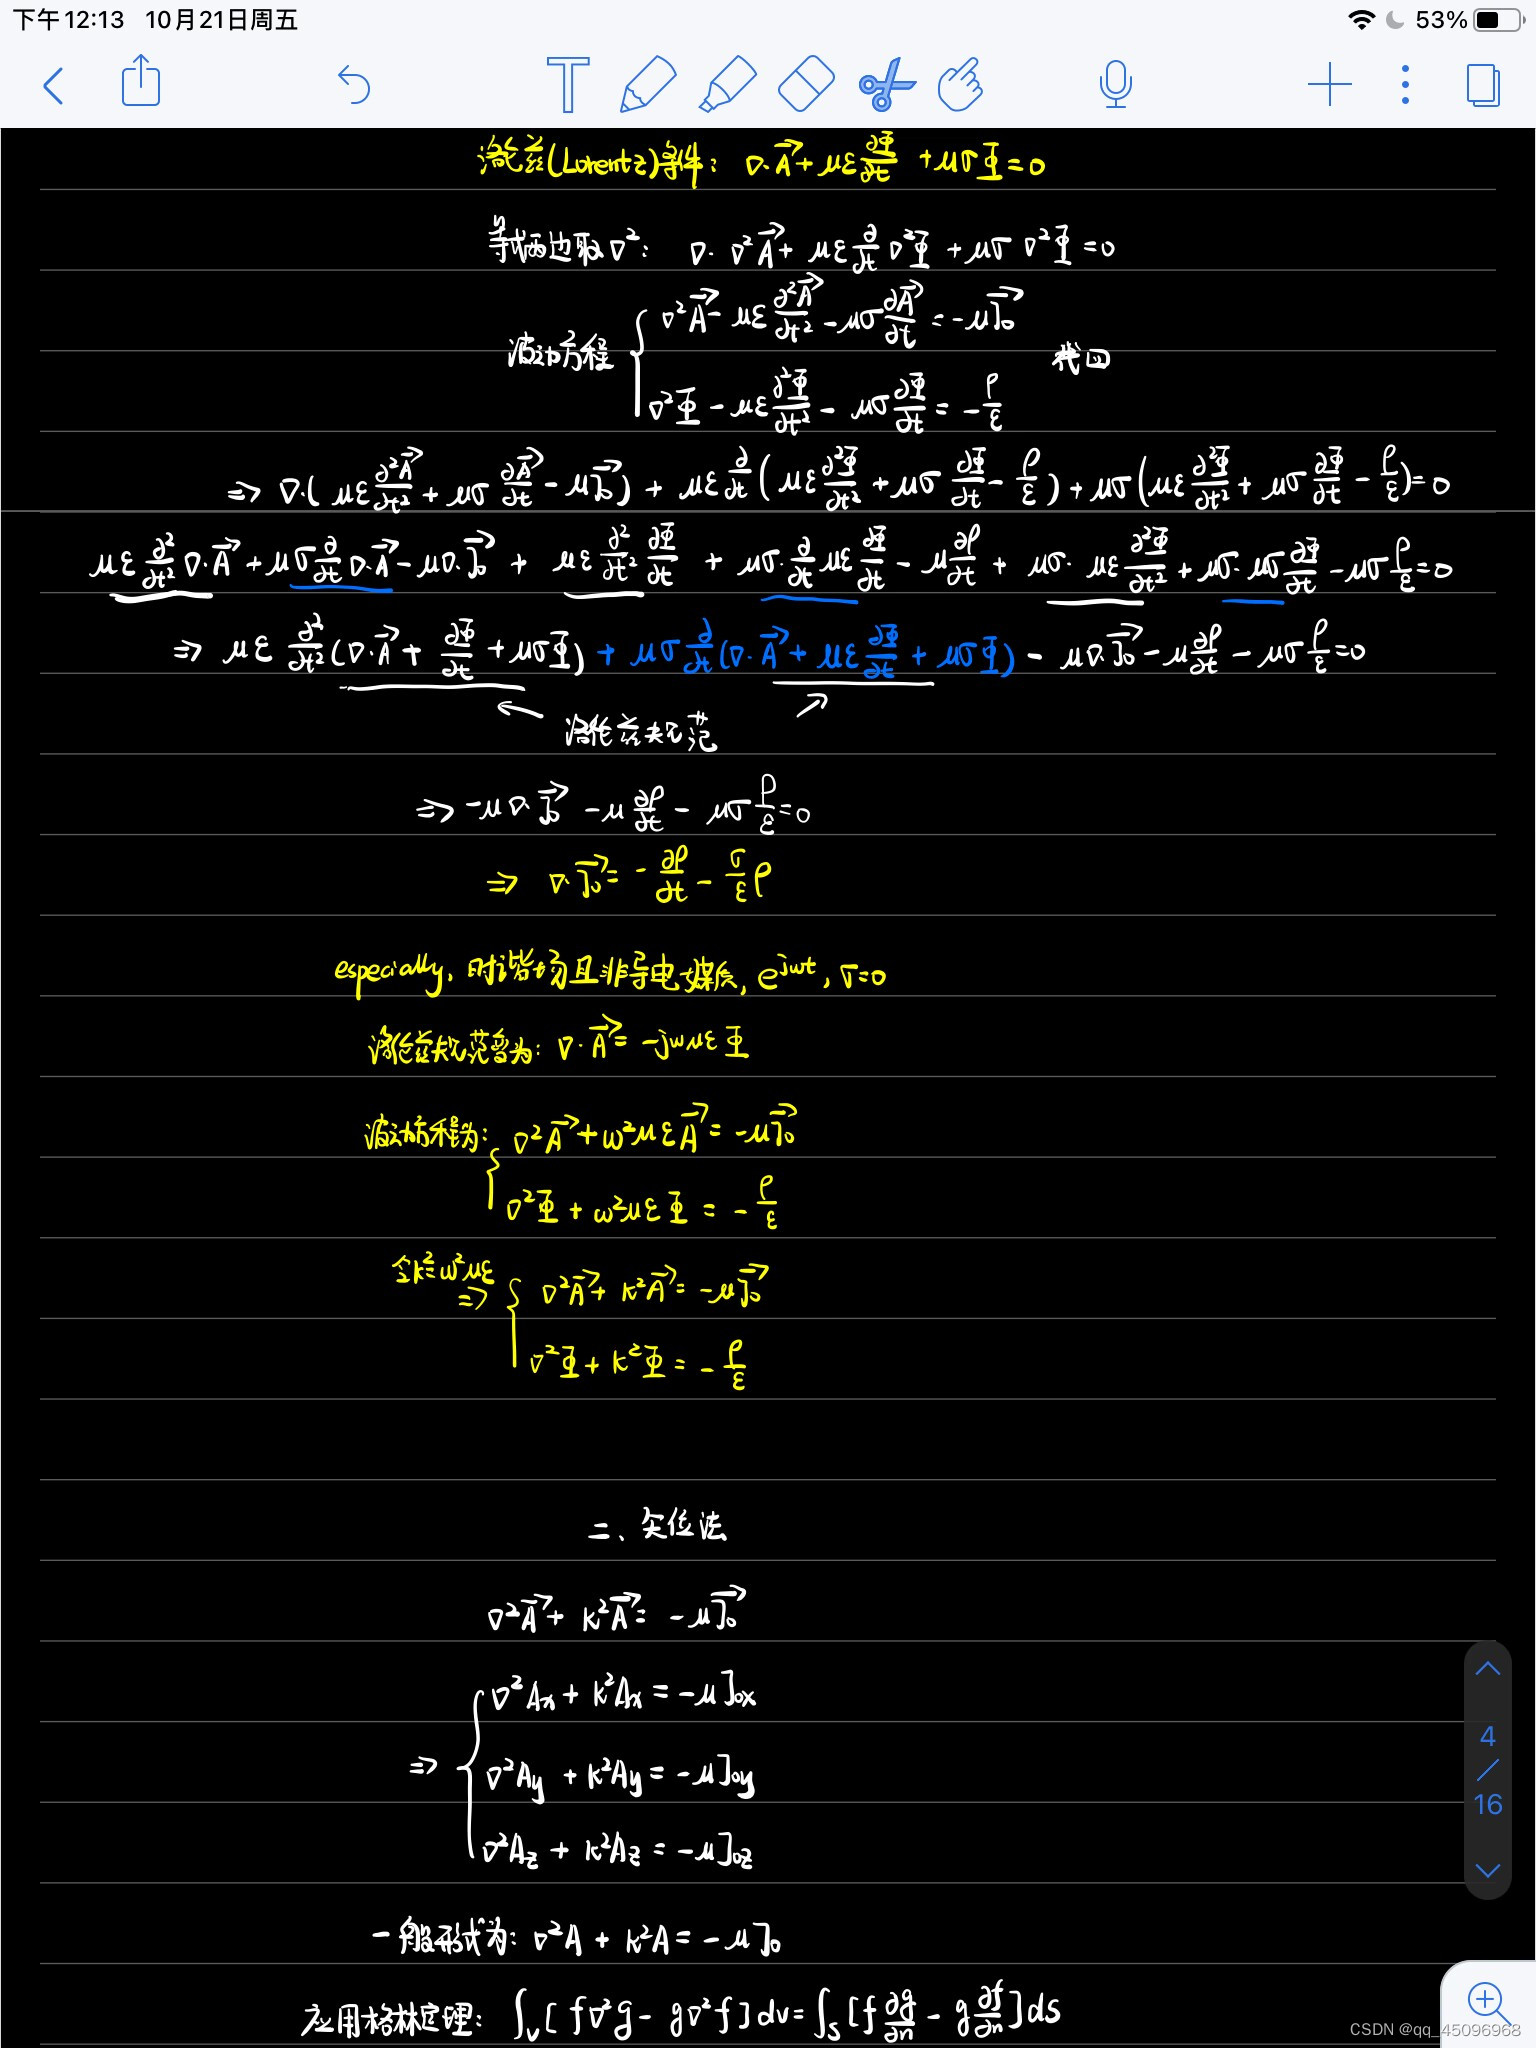 下午12:13 10月21日周五 53%
洛伦兹(Lorentz)条件: ∇·A⃗+με∂Φ/∂t +μσΦ=0
等式两边取∇²: ∇·∇²A⃗+ με∂/∂t ∇²Φ +μσ ∇²Φ=0
∇²A⃗- με∂²A⃗/∂t² -μσ∂A⃗/∂t = -μJ⃗₀
波动方程 { 代回
∇²Φ -με∂²Φ/∂t² - μσ∂Φ/∂t = -ρ/ε
=> ∇·( με∂²A⃗/∂t² + μσ ∂A⃗/∂t - μJ⃗₀) + με ∂/∂t (με∂²Φ/∂t² +μσ ∂Φ/∂t - ρ/ε ) + μσ (με∂²Φ/∂t² + μσ∂Φ/∂t - ρ/ε)=0
με∂²/∂t² ∇·A⃗ +μσ∂/∂t ∇·A⃗ -μ∇·J⃗₀ + με∂²/∂t² ∂Φ/∂t + μσ·∂/∂t με∂Φ/∂t - μ∂ρ/∂t + μσ· με∂²Φ/∂t² + μσ·μσ∂Φ/∂t -μσρ/ε=0
=> με ∂²/∂t² (∇·A⃗+ ∂Φ/∂t +μσΦ) + μσ∂/∂t (∇·A⃗+ με∂Φ/∂t + μσΦ) - μ∇·J⃗₀ -μ∂ρ/∂t - μσρ/ε=0
洛伦兹规范
=> -μ∇·J⃗₀ -μ∂ρ/∂t - μσρ/ε=0
=> ∇·J⃗₀= -∂ρ/∂t - σ/ε ρ
especially, 时谐场且非导电媒质, e^jωt, σ=0
洛伦兹规范为: ∇·A⃗= -jωμεΦ
波动方程为: { ∇²A⃗+ω²μεA⃗= -μJ⃗₀
∇²Φ + ω²μεΦ = -ρ/ε
令k²=ω²με
=> { ∇²A⃗+ k²A⃗= -μJ⃗₀
∇²Φ+ k²Φ = -ρ/ε
二、矢位法
∇²A⃗+ k²A⃗= -μJ⃗₀
∇²Ax + k²Ax = -μJ₀x
=> { ∇²Ay + k²Ay = -μJ₀y
∇²Az + k²Az = -μJ₀z
4
/
16
一般形式为: ∇²A + k²A = -μJ₀
应用格林定理: ∫v [ f∇²g - g∇²f ] dv= ∫s [f∂g/∂n - g∂f/∂n] ds
CSDN @qq_45096968